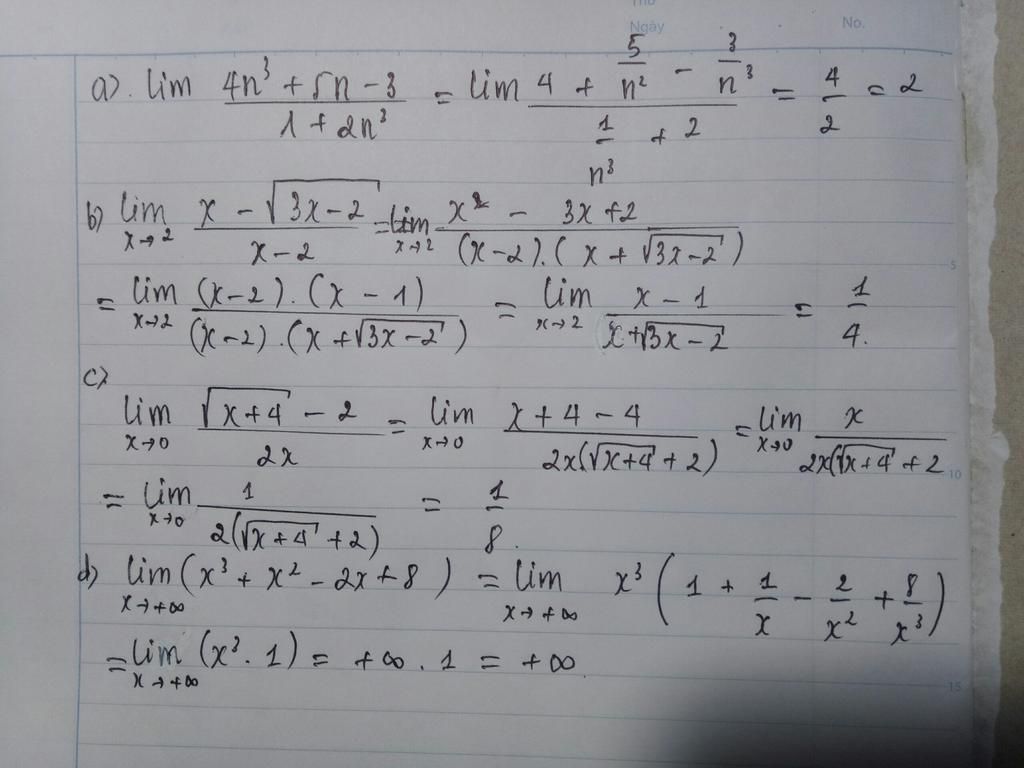 Thứ
Ngày No.
a). lim (4n³ + 5n - 3)/(1 + 2n³) = lim (4 + 5/n² - 3/n³)/(1/n³ + 2) = 4/2 = 2
b) lim x→2 (x - √(3x-2))/(x-2) = lim x→2 (x² - 3x+2)/((x-2).(x + √(3x-2)))
= lim x→2 ((x-2).(x-1))/((x-2).(x+√(3x-2))) = lim x→2 (x-1)/(x+√(3x-2)) = 1/4.
5
c)
lim x→0 (√(x+4) - 2)/(2x) = lim x→0 (x+4-4)/(2x(√(x+4) + 2)) = lim x→0 x/(2x(√(x+4) + 2
10
= lim x→0 1/(2(√(x+4) + 2)) = 1/8.
d) lim x→+∞ (x³ + x² - 2x + 8) = lim x→+∞ x³(1 + 1/x - 2/x² + 8/x³)
= lim x→+∞ (x³ . 1) = +∞ . 1 = +∞
15